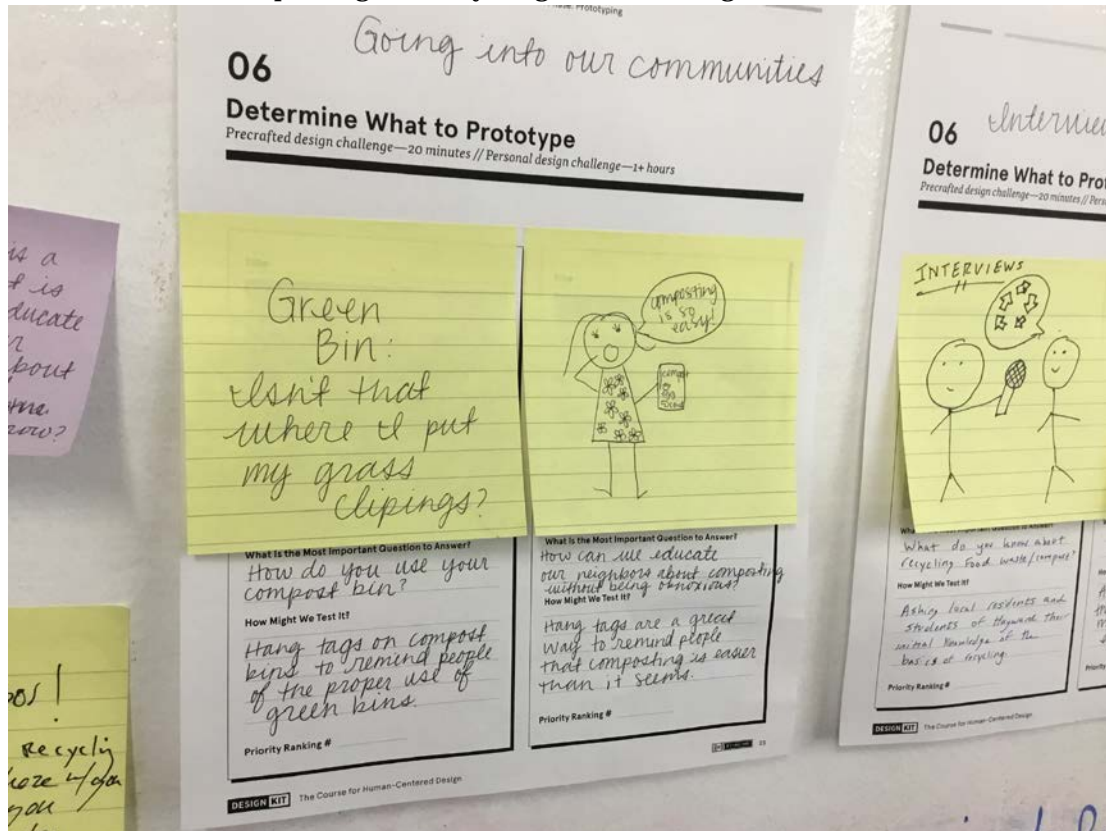 Prototyping
Going into our communities
06
Determine What to Prototype
Precrafted design challenge—20 minutes // Personal design challenge—1+ hours
Green
Bin:
Isn't that
where I put
my grass
clipings?
composting
is so
easy!
compost
What Is the Most Important Question to Answer?
How do you use your
compost bin?
How Might We Test It?
Hang tags on compost
bins to remind people
of the proper use of
green bins.
Priority Ranking #
What Is the Most Important Question to Answer?
How can we educate
our neighbors about composting
without being obnoxious?
How Might We Test It?
Hang tags are a great
way to remind people
that composting is easier
than it seems.
Priority Ranking #
DESIGN KIT The Course for Human-Centered Design
23
06
Interview
Determine What to Prot
Precrafted design challenge—20 minutes // Pers
INTERVIEWS
What is the Most Important Question to Answer?
What do you know about
recycling food waste/compost?
How Might We Test It?
Asking local residents and
students of Hayward their
initial knowledge of the
basics of recycling.
Priority Ranking #
DESIGN KIT The Course for Human-Centered Design
is a
is
ducate
bout
now?
Recyclin
you